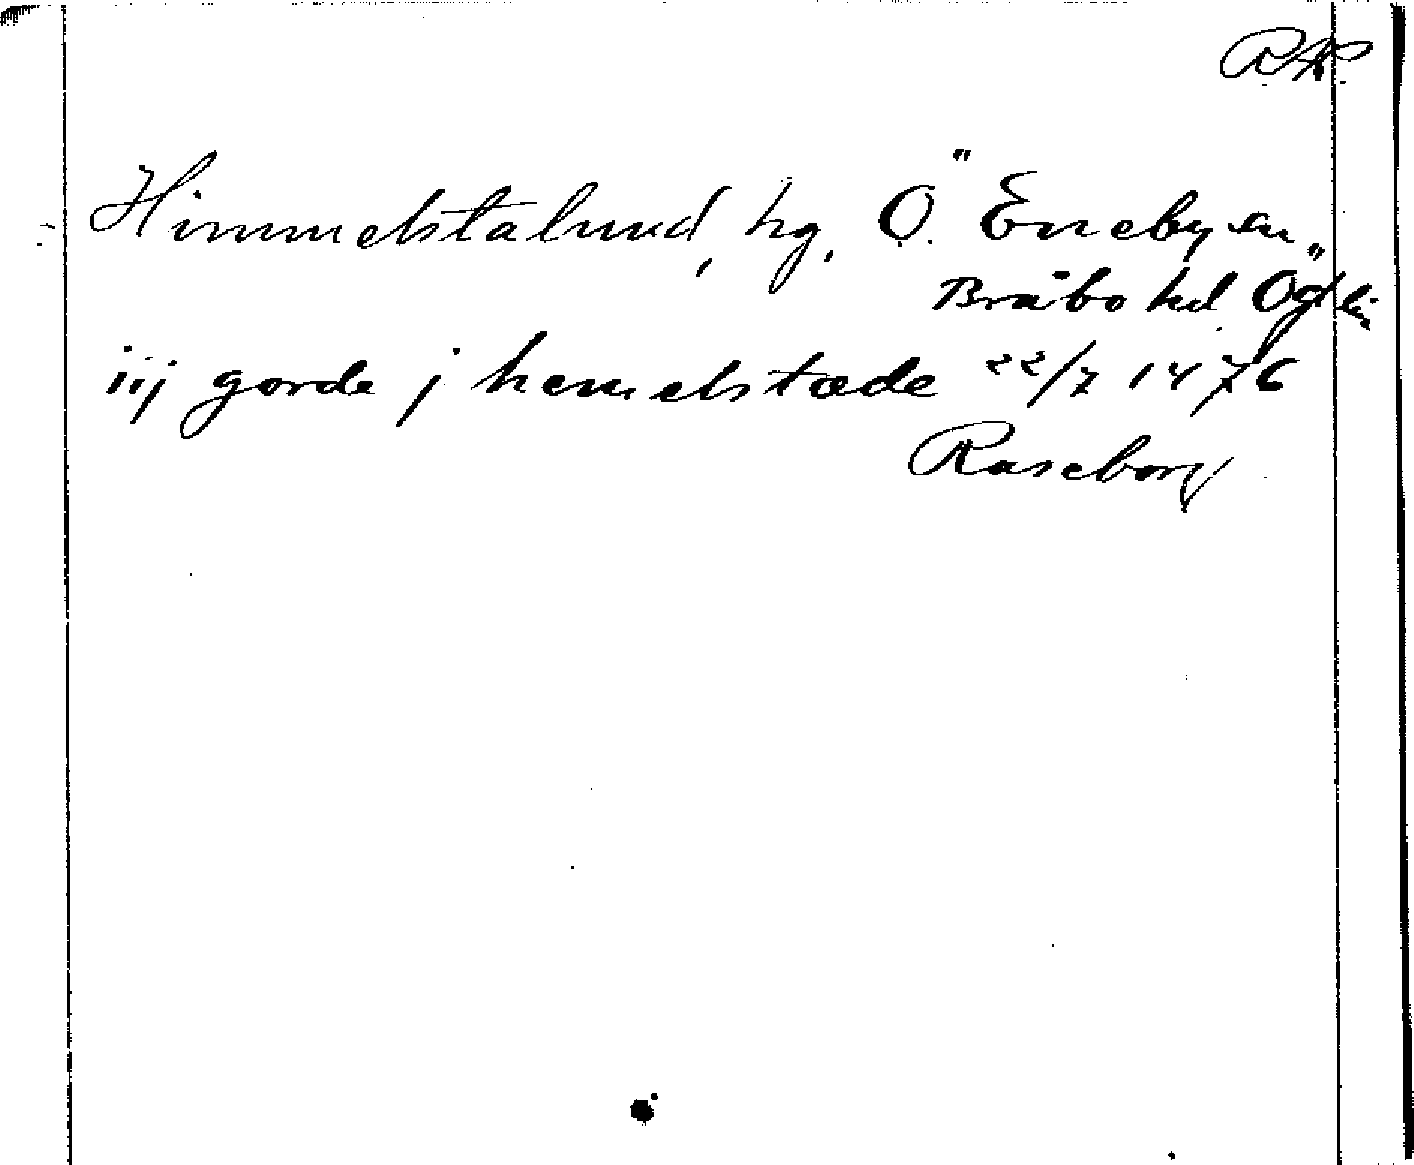 RAP
Himmelstalund, hg, Ö. Eneby sn,
Bråbo hd Ög län
iij gorde j hemelstæde 22/7 1476
Raseborg